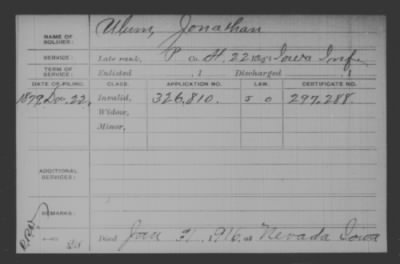 NAME OF SOLDIER: Ulum, Jonathan
SERVICE: Late rank, P Co. H. 22 Reg't Iowa Inf.
TERM OF SERVICE: Enlisted , 1 Discharged , 1
DATE OF FILING. CLASS. APPLICATION NO. LAW. CERTIFICATE NO.
1879 Dec. 22, Invalid, 326,810. J O 297,288.
Widow,
Minor,
ADDITIONAL SERVICES:
REMARKS:
Died Jan 31, 1916, at Nevada Iowa